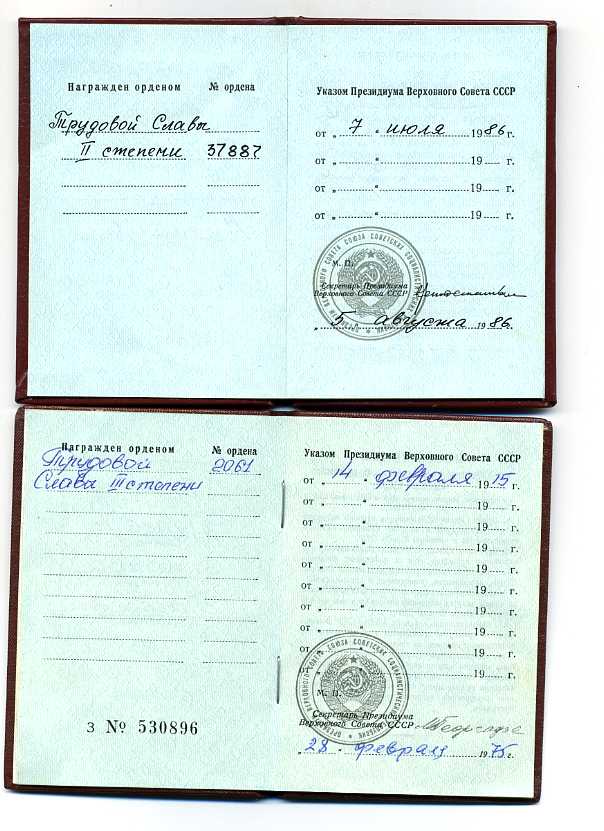 Награжден орденом № ордена
Трудовой Славы
II степени 37887
Указом Президиума Верховного Совета СССР
от „ 7 “ июля 1986 г.
от „ “ 19 г.
от „ “ 19 г.
от „ “ 19 г.
М. П.
Секретарь Президиума
Верховного Совета СССР
„ 5 августа 1986.
Награжден орденом № ордена
Трудовой 2061
Слава III степени
З № 530896
Указом Президиума Верховного Совета СССР
от „ 14 “ февраля 1915 г.
от „ “ 19 г.
от „ “ 19 г.
от „ “ 19 г.
от „ “ 19 г.
от „ “ 19 г.
от „ “ 19 г.
от „ “ 19 г.
от „ “ 19 г.
от „ “ 19 г.
М. П.
Секретарь Президиума
Верховного Совета СССР
„ 28 “ феврал 1975 г.